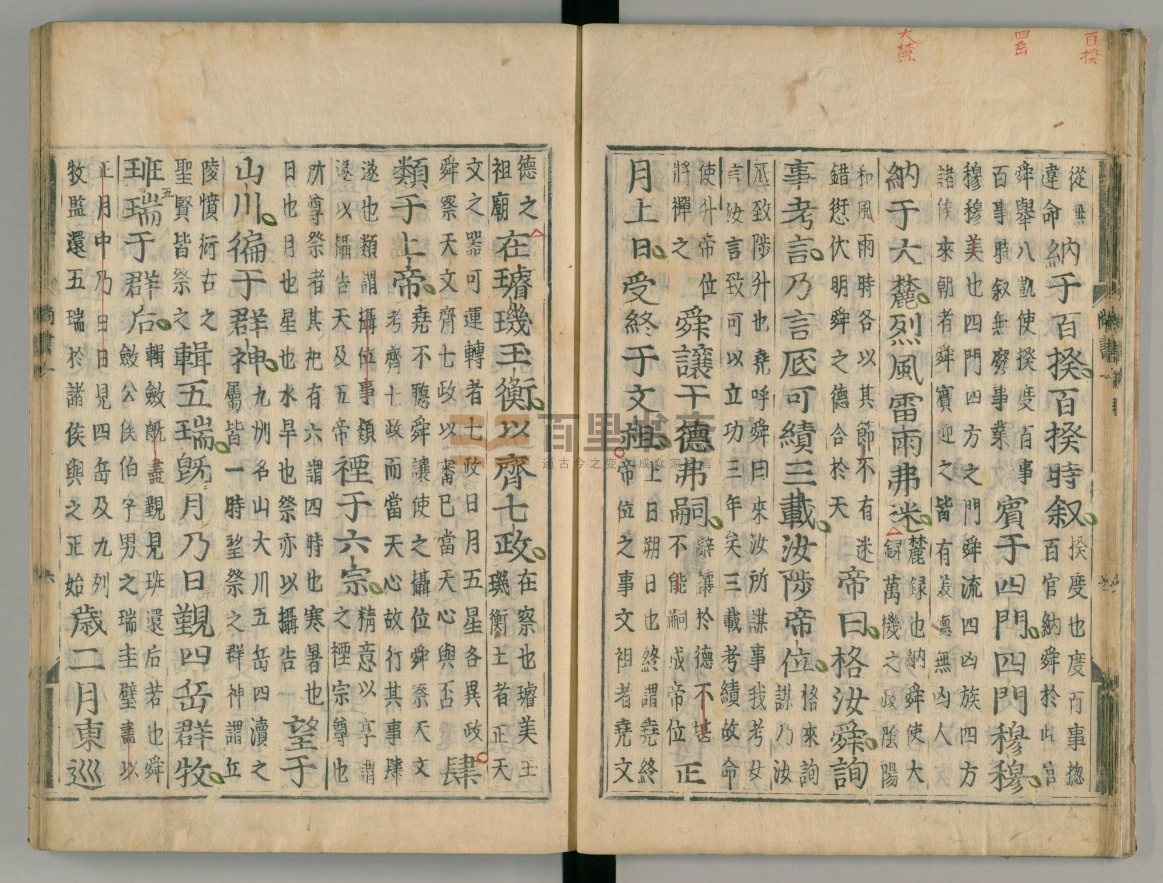 百揆
四岳
大麓
從無
違命
納于百揆百揆時叙
揆度也度百事揔
百官納舜於此官
舜舉八凱使揆度百事
百事時叙無廢事業
賓于四門四門穆穆
穆穆美也四門四方之門舜流四凶族四方
諸侯來朝者舜賓迎之皆有美德無凶人
納于大麓烈風雷雨弗迷
麓録也納舜使大
録萬機之政陰陽
和風雨時各以其節不有迷
錯愆伏明舜之德合於天
帝曰格汝舜詢
事考言乃言厎可績三載汝陟帝位
格來詢
謀乃汝
厎致陟升也堯呼舜曰來汝所謀事我考女
言汝言致可以立功三年矣三載考績故命
使升帝位
將禪之
舜讓于德弗嗣
辭讓於德不堪
不能嗣成帝位
正
月上日受終于文祖
上日朔日也終謂堯終
帝位之事文祖者堯文
德之
祖廟
在璿璣玉衡以齊七政
在察也璿美玉
璣衡王者正天
文之器可運轉者七政日月五星各異政
舜察天文齊七政以審已當天心與否
肆
類于上帝
堯不聽舜讓使之攝位舜察天文
考齊七政而當天心故行其事肆
遂也類謂攝位事類
遂以攝告天及五帝
禋于六宗
精意以享謂
之禋宗尊也
所尊祭者其祀有六謂四時也寒暑也
日也月也星也水旱也祭亦以攝告
望于
山川徧于群神
九州名山大川五岳四瀆之
屬皆一時望祭之群神謂丘
陵墳衍古之
聖賢皆祭之
輯五瑞既月乃日覲四岳群牧
班瑞于群后
輯斂既盡覲見班還后君也舜
斂公侯伯子男之瑞圭璧盡以
正月中乃日日見四岳及九州
牧監還五瑞於諸侯與之正始
歲二月東巡